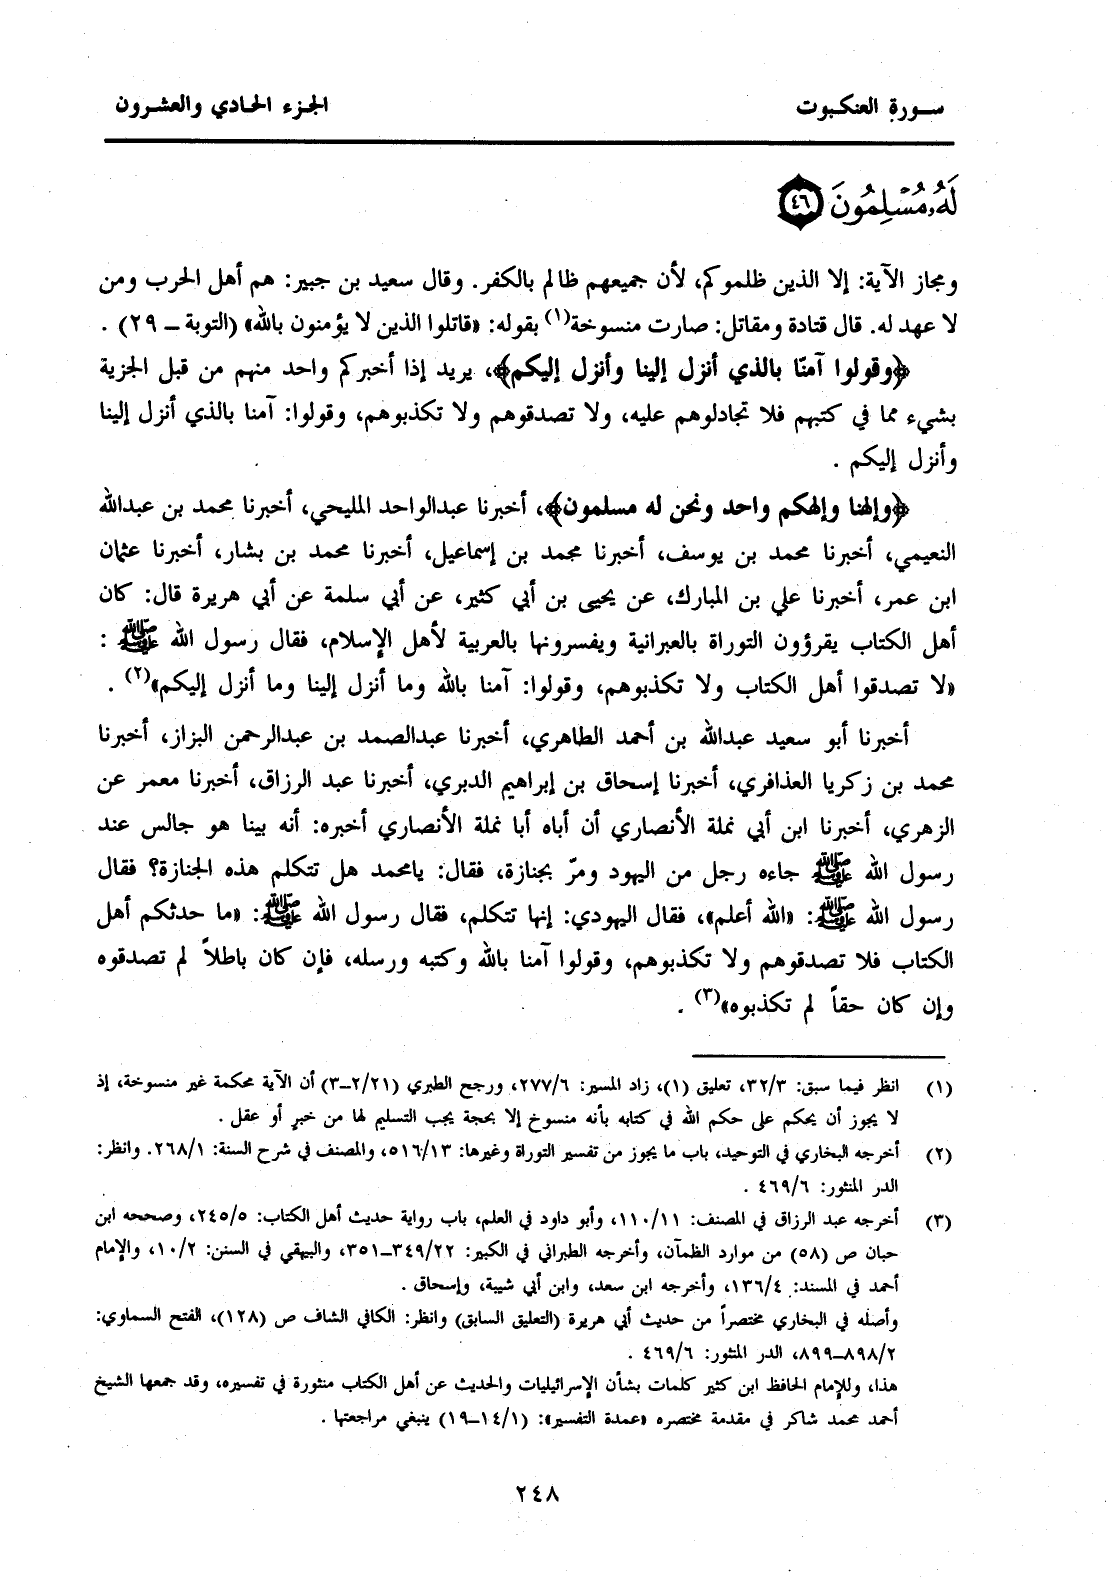 سورة العنكبوت
الجزء الحادي والعشرون
لَهُۥ مُسْلِمُونَ ٤٦
ومجاز الآية: إلا الذين ظلموكم، لأن جميعهم ظالم بالكفر. وقال سعيد بن جبير: هم أهل الحرب ومن
لا عهد له. قال قتادة ومقاتل: صارت منسوخة(١) بقوله: «قاتلوا الذين لا يؤمنون بالله» (التوبة – ٢٩) .
﴿وقولوا آمنّا بالذي أنزل إلينا وأنزل إليكم﴾، يريد إذا أخبركم واحد منهم من قبل الجزية
بشيء مما في كتبهم فلا تجادلوهم عليه، ولا تصدقوهم ولا تكذبوهم، وقولوا: آمنا بالذي أنزل إلينا
وأنزل إليكم .
﴿وإلهنا وإلهكم واحد ونحن له مسلمون﴾، أخبرنا عبدالواحد المليحي، أخبرنا محمد بن عبدالله
النعيمي، أخبرنا محمد بن يوسف، أخبرنا محمد بن إسماعيل، أخبرنا محمد بن بشار، أخبرنا عثمان
ابن عمر، أخبرنا علي بن المبارك، عن يحيى بن أبي كثير، عن أبي سلمة عن أبي هريرة قال: كان
أهل الكتاب يقرؤون التوراة بالعبرانية ويفسرونها بالعربية لأهل الإسلام، فقال رسول الله ﷺ :
«لا تصدقوا أهل الكتاب ولا تكذبوهم، وقولوا: آمنا بالله وما أنزل إلينا وما أنزل إليكم»(٢) .
أخبرنا أبو سعيد عبدالله بن أحمد الطاهري، أخبرنا عبدالصمد بن عبدالرحمن البزاز، أخبرنا
محمد بن زكريا العذافري، أخبرنا إسحاق بن إبراهيم الدبري، أخبرنا عبد الرزاق، أخبرنا معمر عن
الزهري، أخبرنا ابن أبي نملة الأنصاري أن أباه أبا نملة الأنصاري أخبره: أنه بينا هو جالس عند
رسول الله ﷺ جاءه رجل من اليهود ومرّ بجنازة، فقال: يامحمد هل تتكلم هذه الجنازة؟ فقال
رسول الله ﷺ: «الله أعلم»، فقال اليهودي: إنها تتكلم، فقال رسول الله ﷺ: «ما حدثكم أهل
الكتاب فلا تصدقوهم ولا تكذبوهم، وقولوا آمنا بالله وكتبه ورسله، فإن كان باطلاً لم تصدقوه
وإن كان حقاً لم تكذبوه»(٣) .
(١) انظر فيما سبق: ٣٢/٣، تعليق (١)، زاد المسير: ٢٧٧/٦، ورجح الطبري (٢/٢١–٣) أن الآية محكمة غير منسوخة، إذ
لا يجوز أن يحكم على حكم الله في كتابه بأنه منسوخ إلا بحجة يجب التسليم لها من خبر أو عقل .
(٢) أخرجه البخاري في التوحيد، باب ما يجوز من تفسير التوراة وغيرها: ٥١٦/١٣، والمصنف في شرح السنة: ٢٦٨/١. وانظر:
الدر المنثور: ٤٦٩/٦ .
(٣) أخرجه عبد الرزاق في المصنف: ١١٠/١١، وأبو داود في العلم، باب رواية حديث أهل الكتاب: ٢٤٥/٥، وصححه ابن
حبان ص (٥٨) من موارد الظمآن، وأخرجه الطبراني في الكبير: ٣٤٩/٢٢–٣٥١، والبيهقي في السنن: ١٠/٢، والإمام
أحمد في المسند: ١٣٦/٤، وأخرجه ابن سعد، وابن أبي شيبة، وإسحاق .
وأصله في البخاري مختصراً من حديث أبي هريرة (التعليق السابق) وانظر: الكافي الشاف ص (١٢٨)، الفتح السماوي:
٨٩٨/٢–٨٩٩، الدر المنثور: ٤٦٩/٦ .
هذا، وللإمام الحافظ ابن كثير كلمات بشأن الإسرائيليات والحديث عن أهل الكتاب منثورة في تفسيره، وقد جمعها الشيخ
أحمد محمد شاكر في مقدمة مختصره «عمدة التفسير»: (١٤/١–١٩) ينبغي مراجعتها .
٢٤٨